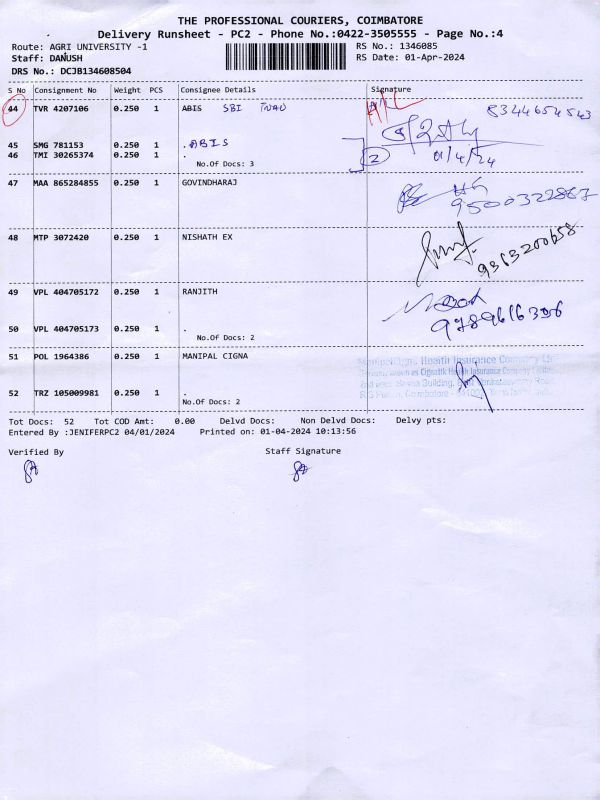 THE PROFESSIONAL COURIERS, COIMBATORE
Delivery Runsheet - PC2 - Phone No.:0422-3505555 - Page No.:4
Route: AGRI UNIVERSITY -1
RS No.: 1346085
Staff: DANUSH
RS Date: 01-Apr-2024
DRS No.: DCJB134608504
S No Consignment No Weight PCS Consignee Details Signature
44 TVR 4207106 0.250 1 ABIS SBI TNAU
8344654543
45 SMG 781153 0.250 1 .ABIS
46 TMI 30265374 0.250 1 .
2
01/4/24
No.Of Docs: 3
47 MAA 865284855 0.250 1 GOVINDHARAJ
9500322867
48 MTP 3072420 0.250 1 NISHATH EX
9363200658
49 VPL 404705172 0.250 1 RANJITH
50 VPL 404705173 0.250 1 .
No.Of Docs: 2
51 POL 1964386 0.250 1 MANIPAL CIGNA
ManipalCigna Health Insurance Company
52 TRZ 105009981 0.250 1 .
No.Of Docs: 2
Tot Docs: 52 Tot COD Amt: 0.00 Delvd Docs: Non Delvd Docs: Delvy pts:
Entered By :JENIFERPC2 04/01/2024 Printed on: 01-04-2024 10:13:56
Verified By Staff Signature